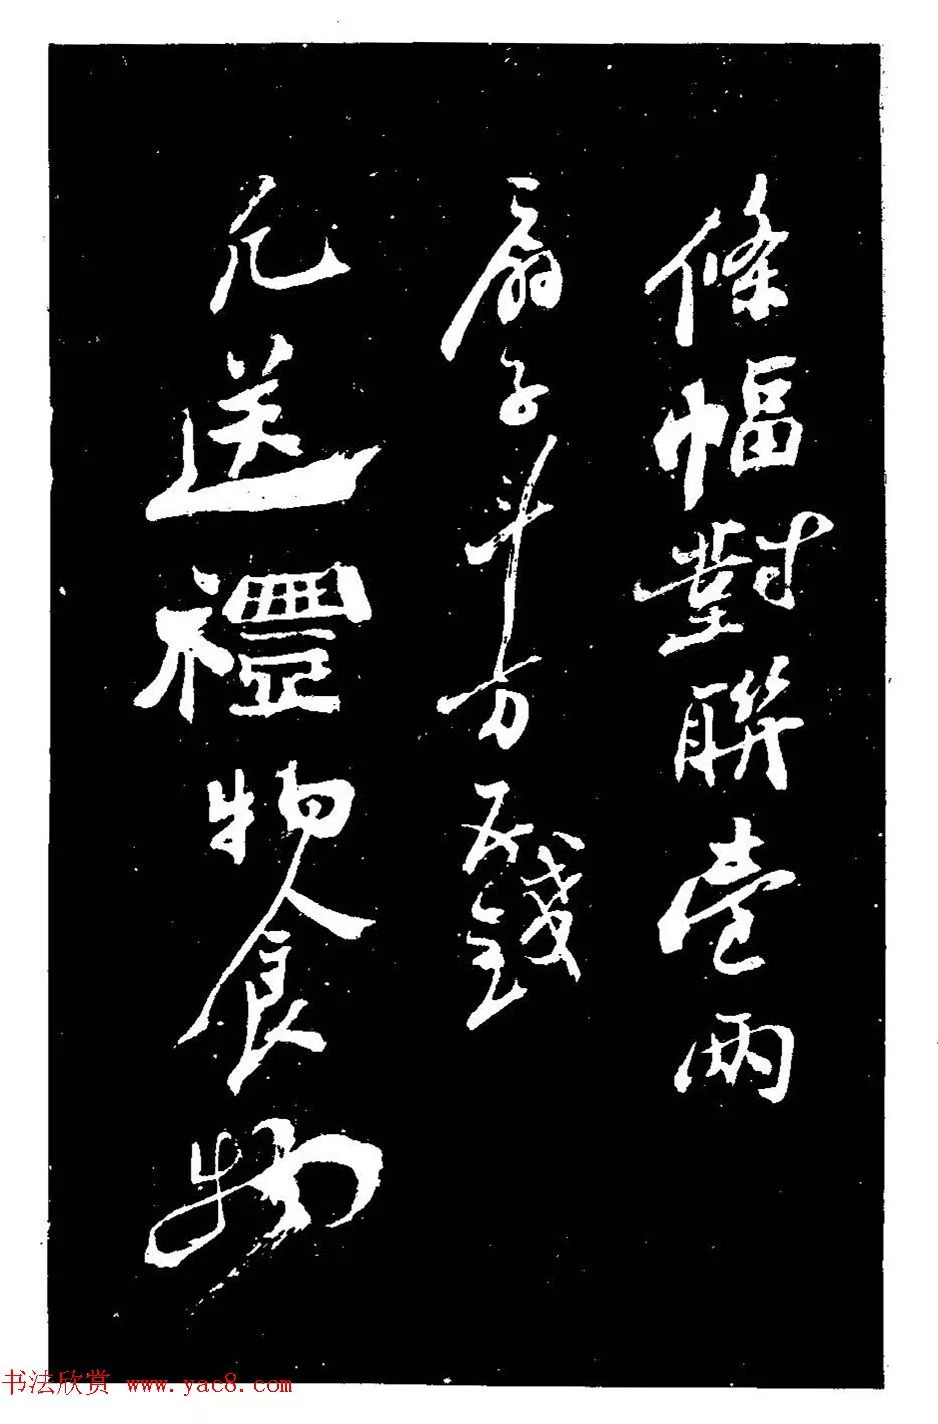 條幅對聯壹兩
扇子斗方五錢
凡送禮物食物
书法欣赏 www.yac8.com